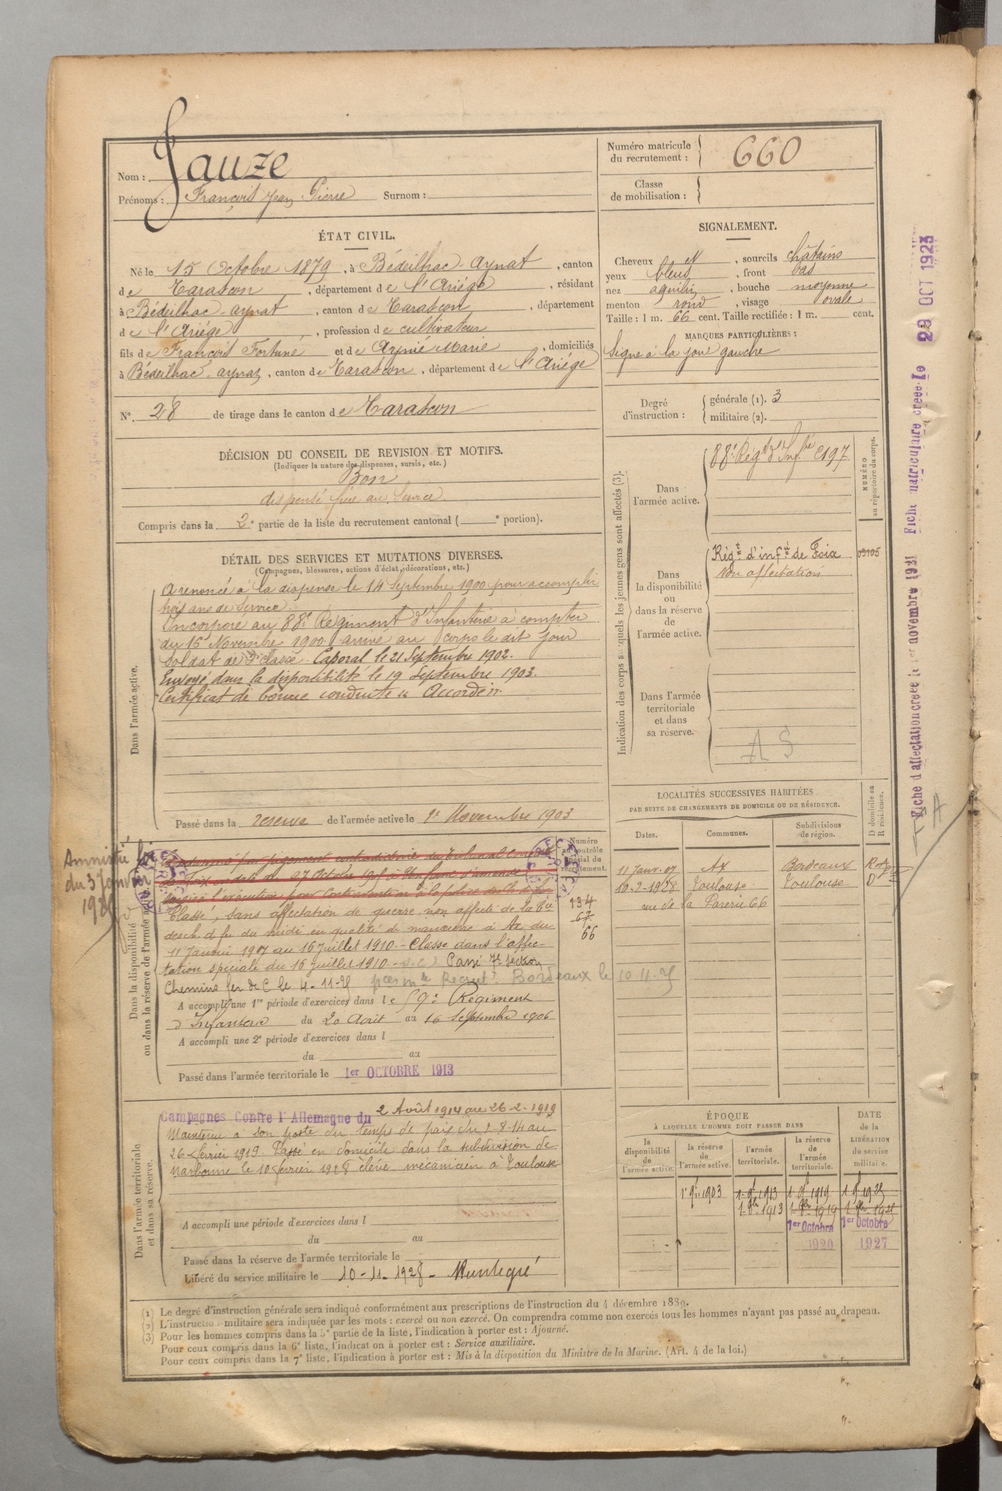 Nom : Jauze
Prénoms : François Jean Pierre Surnom :
Numéro matricule du recrutement : 660
Classe de mobilisation :
ÉTAT CIVIL.
Né le 15 Octobre 1879, à Bédeilhac-aynat, canton
de Tarascon, département de l'Ariège, résidant
à Bédeilhac-aynat, canton de Tarascon, département
de l'Ariège, profession de cultivateur
fils de François Fortuné et de Marie, domiciliés
à Bédeilhac-aynat, canton de Tarascon, département de l'Ariège
N°. 28 de tirage dans le canton de Tarascon
SIGNALEMENT.
Cheveux et, sourcils châtains
yeux bleus, front bas
nez aquilin, bouche moyenne
menton rond, visage ovale
Taille : 1 m. 66 cent. Taille rectifiée : 1 m. cent.
MARQUES PARTICULIÈRES :
Signe à la joue gauche
Degré d'instruction : générale (1). 3
militaire (2).
DÉCISION DU CONSEIL DE REVISION ET MOTIFS.
(Indiquer la nature des dispenses, sursis, etc.)
Bon
dispensé frère au service
Compris dans la 2e partie de la liste du recrutement cantonal ( e portion).
DÉTAIL DES SERVICES ET MUTATIONS DIVERSES.
(Campagnes, blessures, actions d'éclat, décorations, etc.)
Dans l'armée active.
A renoncé à la dispense le 14 Septembre 1900 pour accomplir
trois ans de service.
Incorporé au 88e Régiment d'Infanterie à compter
du 16 Novembre 1900 arrivé au corps le dit jour
Soldat de 2e classe. Caporal le 21 Septembre 1902.
Envoyé dans la disponibilité le 19 Septembre 1903.
Certificat de bonne conduite "Accordé".
Passé dans la réserve de l'armée active le 1er Novembre 1903
Indication des corps auxquels les jeunes gens sont affectés (3).
NUMÉRO au répertoire du corps.
Dans l'armée active.
88e Régt d'Infie
Dans la disponibilité ou dans la réserve de l'armée active.
Régt d'infie de Foix
Non affectation
Dans l'armée territoriale et dans sa réserve.
A S
LOCALITÉS SUCCESSIVES HABITÉES
PAR SUITE DE CHANGEMENTS DE DOMICILE OU DE RÉSIDENCE.
Dates. Communes. Subdivisions de région. D domicile ou R résidence.
11 Janv. 07 Ax Bordeaux R
10-2-1928 Toulouse Toulouse D
rue de la 66
Amnistié
du 3 Janvier
Dans la disponibilité ou dans la réserve de l'armée active
Numéro au contrôle spécial du recrutement.
134
67
66
Classé, sans affectation de guerre, non affecté de la
ch. d. fer du midi en qualité de manœuvre à Ax du
11 Janvier 1907 au 16 juillet 1910. Classé dans l'affec-
tation spéciale du 16 juillet 1910. Passé section
Chemins fer de C le 4-11-25 Recrut. Bordeaux le 10.11.25
A accompli une 1re période d'exercices dans le 59e Régiment
d'Infanterie du 20 Août au 16 Septembre 1906
A accompli une 2e période d'exercices dans l
du au
Passé dans l'armée territoriale le 1er OCTOBRE 1913
Dans l'armée territoriale et dans sa réserve.
Campagnes Contre l'Allemagne du 2 Août 1914 au 26-2-1919
Maintenu à son poste du temps de paix du 2-8-14 au
26 février 1919. Passé en domicile dans la subdivision de
Narbonne le 10 février 1928 élève mécanicien à Toulouse
A accompli une période d'exercices dans l
du au
Passé dans la réserve de l'armée territoriale le
Libéré du service militaire le 10-11-1928
ÉPOQUE
À LAQUELLE L'HOMME DOIT PASSER DANS
la disponibilité de l'armée active.
la réserve de l'armée active.
l'armée territoriale.
la réserve de l'armée territoriale.
DATE de la LIBÉRATION du service militaire.
1er 9bre 1903 1er 9bre 1913 1er 9bre 1919 1er 9bre 1925
1er Octobre 1er Octobre
1920 1927
(1) Le degré d'instruction générale sera indiqué conformément aux prescriptions de l'instruction du 4 décembre 1889.
(2) L'instruction militaire sera indiquée par les mots : exercé ou non exercé. On comprendra comme non exercés tous les hommes n'ayant pas passé au drapeau.
(3) Pour les hommes compris dans la 5e partie de la liste, l'indication à porter est : Ajourné.
Pour ceux compris dans la 6e liste, l'indication à porter est : Service auxiliaire.
Pour ceux compris dans la 7e liste, l'indication à porter est : Mis à la disposition du Ministre de la Marine. (Art. 4 de la loi.)
Fiche d'affectation créée le 1er novembre 1921 Fiche matriculaire créée le 29 OCT 1923